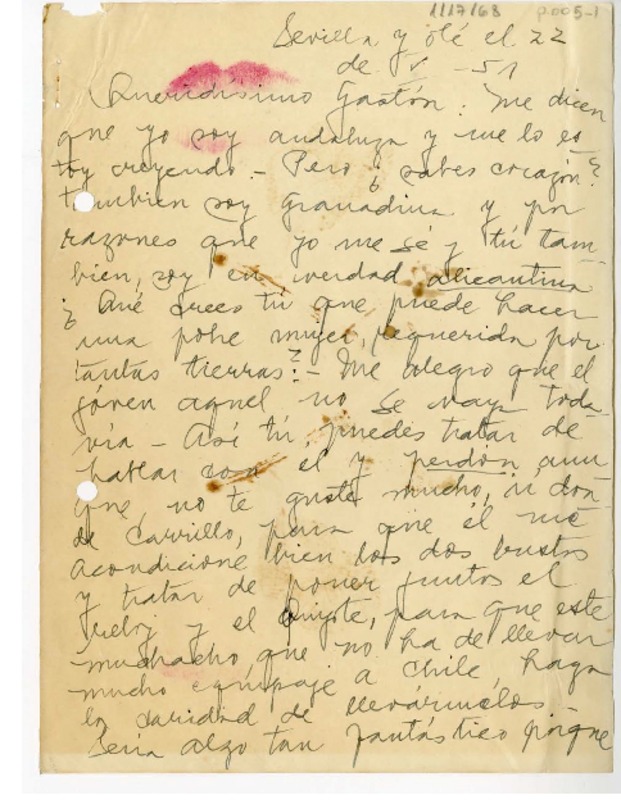 1117/68 p.005-1
Sevilla y olé el 22
de V - 51
Queridísimo Gastón. Me dicen
que yo soy andaluza y me lo es-
toy creyendo. - Pero ¿sabes corazón?
también soy Granadina y por
razones que yo me sé y tú tam-
bien, soy en verdad alicantina
¿Qué crees tú que puede hacer
una pobre mujer, requerida por
tantas tierras? - Me alegro que el
jóven aquel no se vaya toda-
vía - Así tú puedes tratar de
hablar con el y perdón aun
que, no te guste mucho, ir don-
de Carrillo, para que él me
acondicione bien los dos bustos
y tratar de poner juntos el
reloj y el Quijote, para que este
muchacho, que no ha de llevar
mucho equipaje a Chile, haga
la caridad de llevármelos -
Sería algo tan fantástico porque